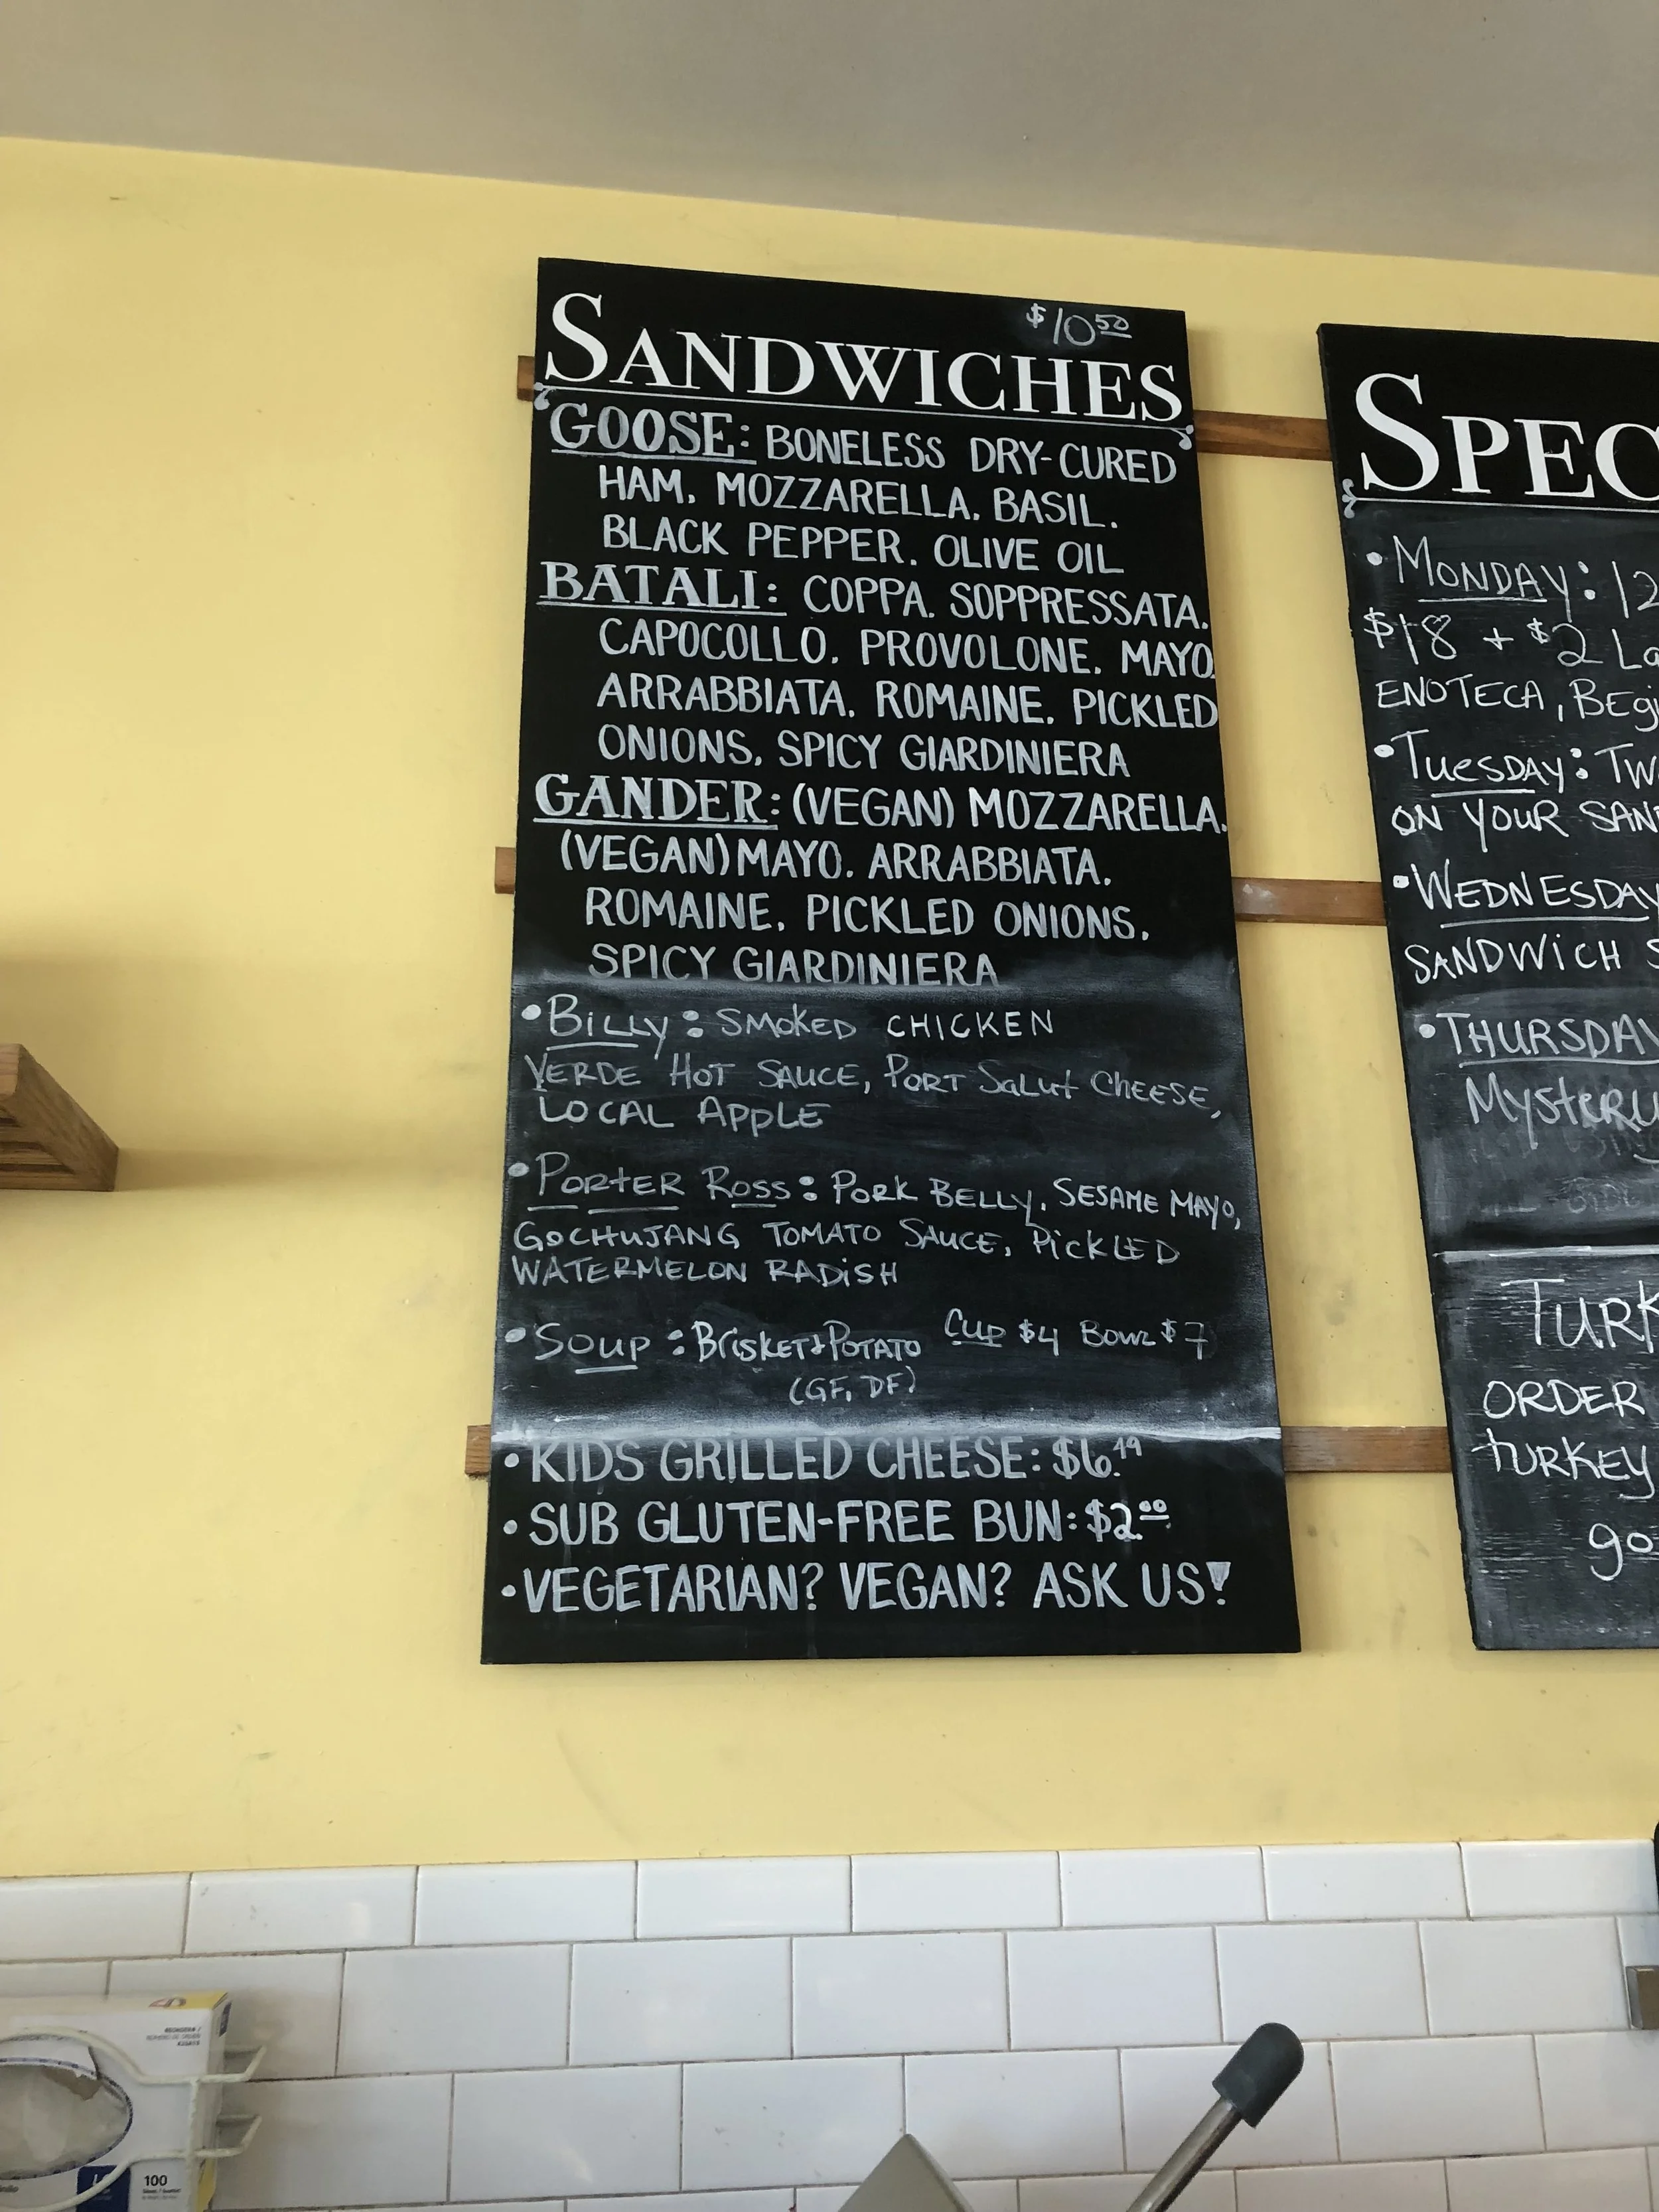 $10 50
SANDWICHES
GOOSE: BONELESS DRY-CURED
HAM, MOZZARELLA, BASIL,
BLACK PEPPER, OLIVE OIL
BATALI: COPPA, SOPPRESSATA,
CAPOCOLLO, PROVOLONE, MAYO,
ARRABBIATA, ROMAINE, PICKLED
ONIONS, SPICY GIARDINIERA
GANDER: (VEGAN) MOZZARELLA,
(VEGAN) MAYO, ARRABBIATA,
ROMAINE, PICKLED ONIONS,
SPICY GIARDINIERA
•BILLY: SMOKED CHICKEN
VERDE HOT SAUCE, PORT SALUT CHEESE,
LOCAL APPLE
•PORTER ROSS: PORK BELLY, SESAME MAYO,
GOCHUJANG TOMATO SAUCE, PICKLED
WATERMELON RADISH
•SOUP: BRISKET + POTATO CUP $4 BOWL $7
(GF, DF)
•KIDS GRILLED CHEESE: $6.49
•SUB GLUTEN-FREE BUN: $2.00
•VEGETARIAN? VEGAN? ASK US!
SPEC
•MONDAY: 12
$18 + $2 La
ENOTECA, Begi
•TUESDAY: TW
ON YOUR SAN
•WEDNESDAY
SANDWICH S
•THURSDAY
MYSTERY
TURK
ORDER
TURKEY
go
100